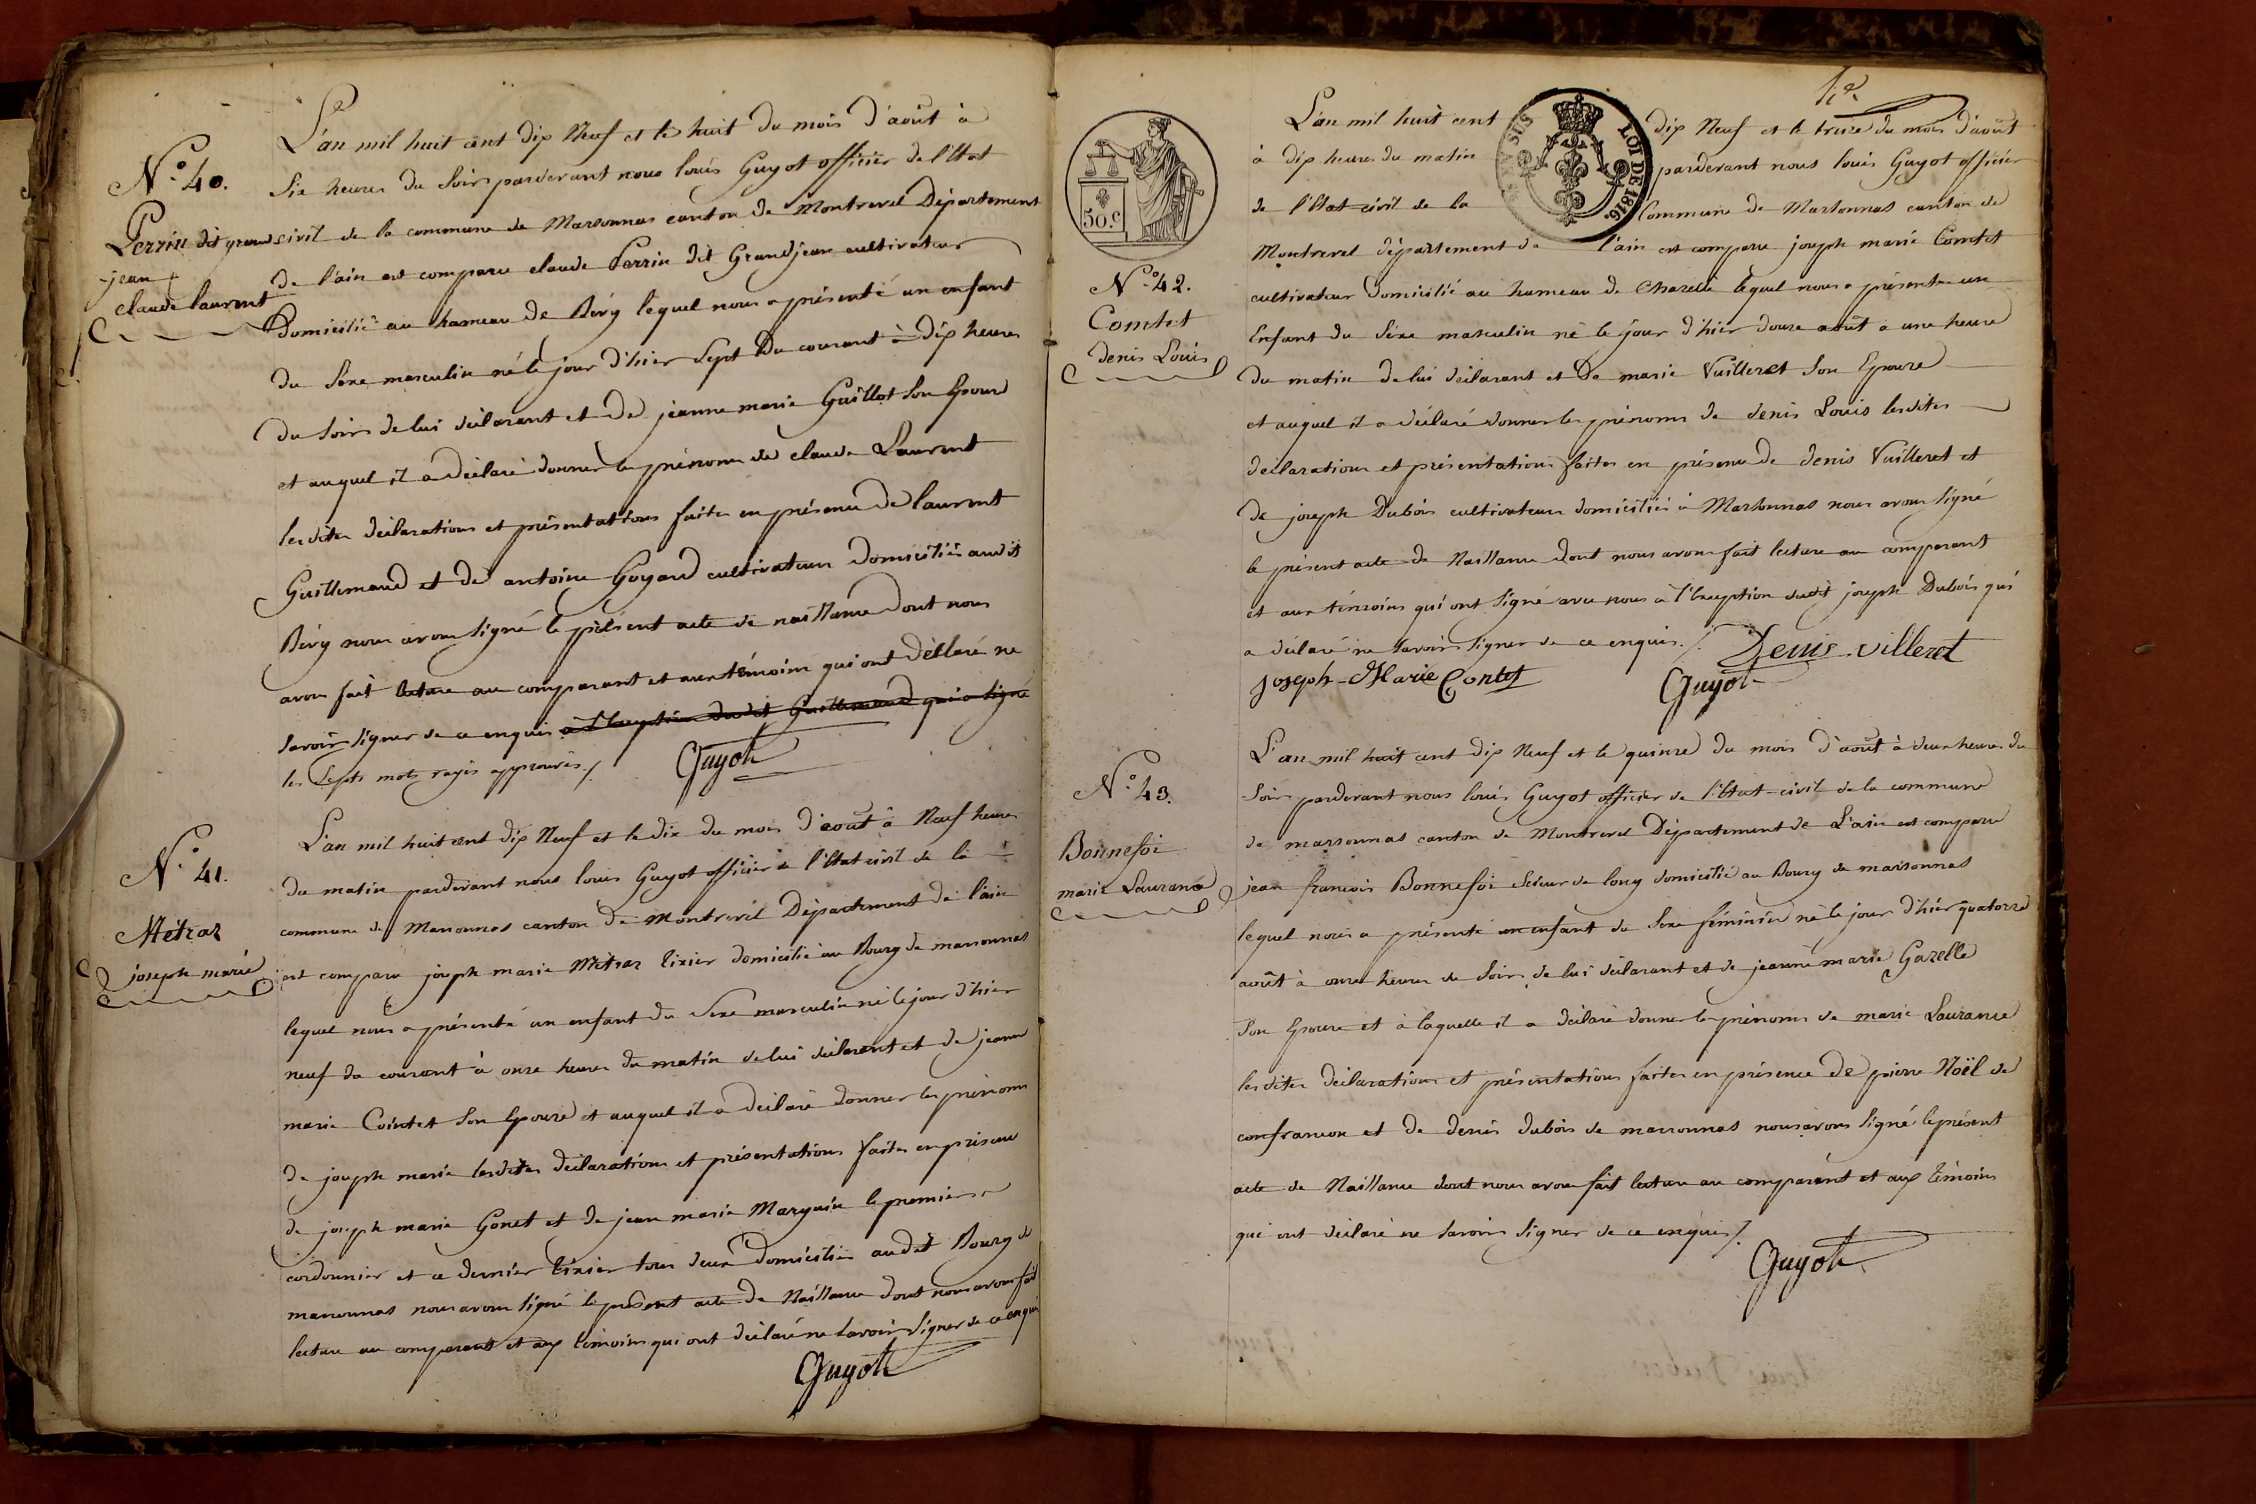 N.° 40.
Perrin dit grand
jean
claude laurent
L'an mil huit cent dix Neuf et le huit du mois d'août à
six heures du Soir pardevant nous louis Guyot officier de l'Etat
civil de la commune de Marsonnas canton de Montrevel Département
de l'ain est comparu claude Perrin dit Grandjean cultivateur
Domicilié au hameau de Bévy lequel nous a présenté un enfant
du Sexe masculin né le jour d'hier Sept Du courant à Dix heures
du Soir de lui déclarant et De jeanne marie Guillot Son Epouse
et auquel il a déclaré donner les prénoms de claude Laurent
lesdites déclarations et présentations faites en présence De laurent
Guillemaud et de antoine Goyard cultivateurs Domiciliés audit
Bévy nous avons signé le présent acte de naissance Dont nous
avons fait lecture au comparant et aux témoins qui ont Déclaré ne
savoir signer de ce enquis à l'exception dudit Guillemaud qui a signé
les Septs mots rayés approuvés ./.
Guyot
N.° 41.
Métraz
joseph marie
L'an mil huit cent dix Neuf et le dix du mois d'août à Neuf heures
du matin pardevant nous louis Guyot officier de l'Etat civil de la
commune de Marsonnas canton de Montrevel Département de l'ain
est comparu joseph marie Métraz tixier domicilié au Bourg de marsonnas
lequel nous a présenté un enfant du Sexe masculin né le jour d'hier
neuf du courant à onze heures du matin de lui déclarant et de jeanne
marie Cointet Son Epouse et auquel il a déclaré donner les prénoms
de joseph marie lesdites déclarations et présentations faites en présence
de joseph marie Gonet et de jean marie Marguin le premier
cordonnier et ce dernier tixier tous deux domiciliés audit Bourg de
marsonnas nous avons signé le présent acte de Naissance dont nous avons fait
lecture au comparant et aux témoins qui ont déclaré ne savoir signer de ce enquis
Guyot
50.c
LOI DE 1816.
EN SUS
N.° 42.
Comtet
denis Louis
L'an mil huit cent dix Neuf et le treize du mois d'août
à dix heures du matin pardevant nous louis Guyot officier
de l'Etat-civil de la Commune de Marsonnas canton de
Montrevel département de l'ain est comparu joseph marie Comtet
cultivateur Domicilié au hameau de Charelle lequel nous a présenté un
Enfant du Sexe masculin né le jour d'hier douze août à une heure
du matin de lui déclarant et De marie Vuilleret Son Epouse
et auquel il a déclaré donner les prénoms de denis Louis lesdites
déclarations et présentations faites en présence de denis Vuilleret et
de joseph Dubois cultivateurs domiciliés à Marsonnas nous avons signé
le présent acte de Naissance dont nous avons fait lecture au comparant
et aux témoins qui ont signé avec nous à l'Exception dudit joseph Dubois qui
a déclaré ne savoir signer de ce enquis ./. Denis villeret
joseph-Marie Contet Guyot
N.° 43.
Bonnefoi
marie Laurance
L'an mil huit cent dix Neuf et le quinze du mois d'août à deux heures du
soir pardevant nous louis Guyot officier de l'Etat-civil de la commune
de marsonnas canton de Montrevel Département de L'ain est comparu
jean francois Bonnefoi Scieur de long domicilié au Bourg de marsonnas
lequel nous a présenté un enfant du Sexe féminin né le jour d'hier quatorze
août à onze heures du soir de lui déclarant et de jeanne marie Gazelle
Son Epouse et à laquelle il a déclaré donner les prénoms de marie Laurance
lesdites déclarations et présentations faites en présence de pierre Noël de
confrancon et de denis dubois de marsonnas nous avons signé le présent
acte de Naissance dont nous avons fait lecture au comparant et aux témoins
qui ont déclaré ne savoir signer de ce enquis ./.
Guyot